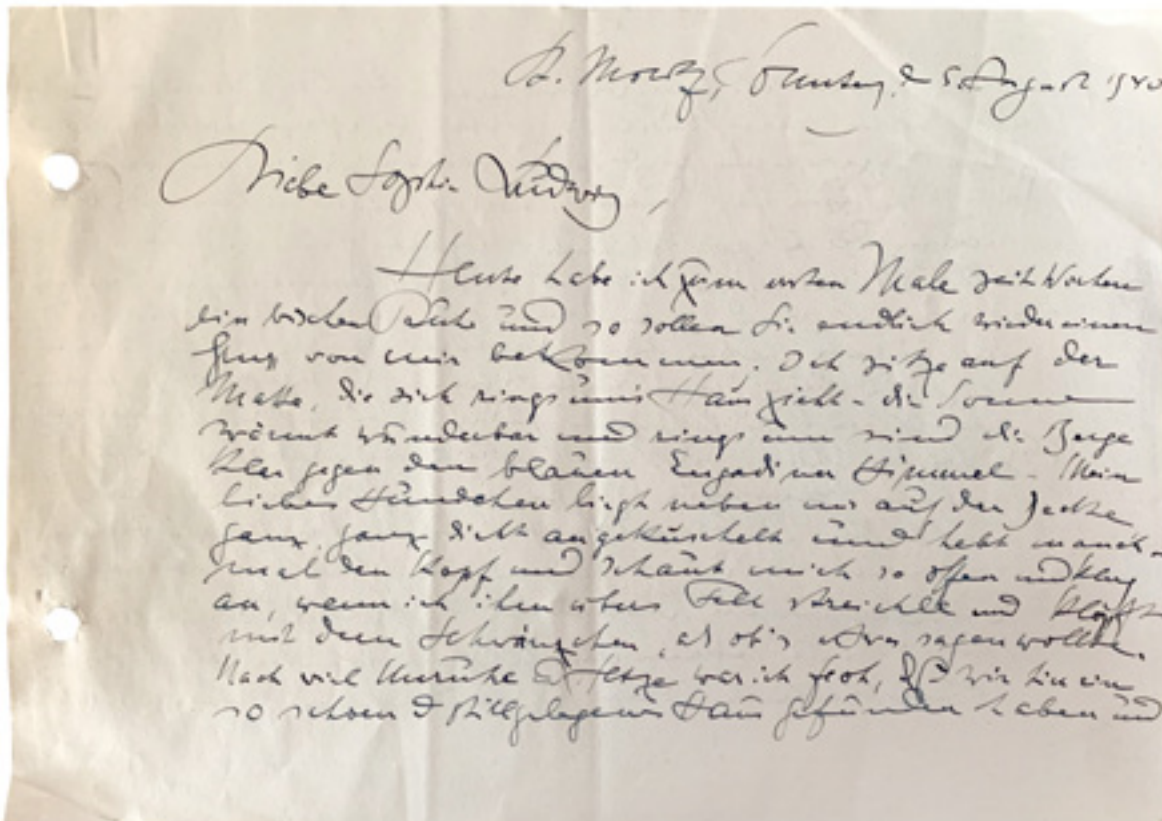 St. Moritz, Sonntag, d 5. August 1940
Liebe Sophie Ludwig,
Heute habe ich zum ersten Male seit Wochen
ein bischen Ruhe und so sollen Sie endlich wieder einen
Gruss von mir bekommen. Ich sitze auf der
Matte, die sich rings ums Haus zieht - die Sonne
wärmt wunderbar und rings um sind die Berge
klar gegen den blauen Engadiner Himmel - Mein
liebes Hündchen liegt neben mir auf der Decke
ganz, ganz dicht angekuschelt und hebt manch-
mal den Kopf und schaut mich so offen und klug
an, wenn ich ihm übers Fell streichle und klopft
mit dem Schwänzchen, als ob's etwas sagen wollte.
Nach viel Unruhe & Hetze war ich froh, daß wir hier ein
so schoen & stillgelegenes Haus gefunden haben und